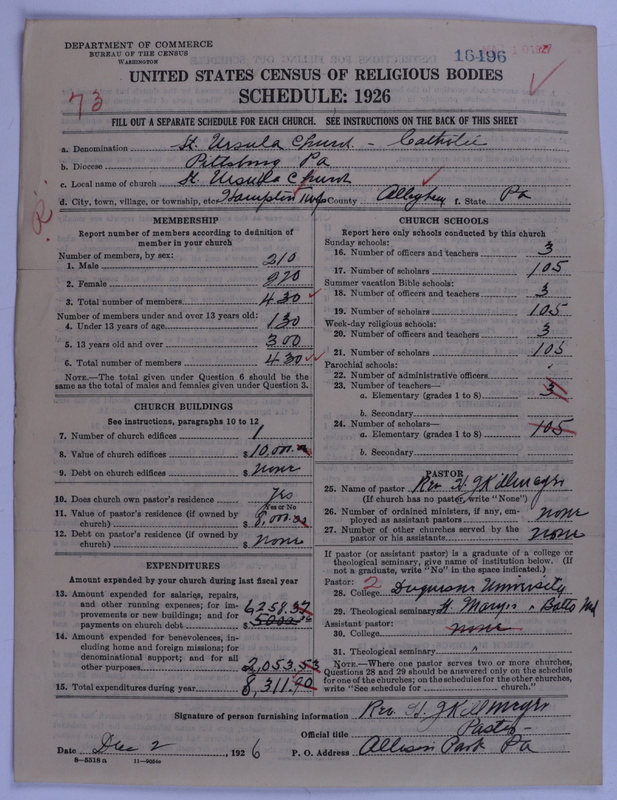 DEPARTMENT OF COMMERCE
BUREAU OF THE CENSUS
WASHINGTON
16496
UNITED STATES CENSUS OF RELIGIOUS BODIES
73
SCHEDULE: 1926
FILL OUT A SEPARATE SCHEDULE FOR EACH CHURCH. SEE INSTRUCTIONS ON THE BACK OF THIS SHEET
a. Denomination St. Ursula Church - Catholic
b. Diocese Pittsburg Pa
c. Local name of church St. Ursula Church
d. City, town, village, or township, etc. Hampton Twp County Allegheny f. State Pa
R
MEMBERSHIP
Report number of members according to definition of
member in your church
Number of members, by sex:
1. Male 210
2. Female 220
3. Total number of members 430
Number of members under and over 13 years old:
4. Under 13 years of age 130
5. 13 years old and over 300
6. Total number of members 430
NOTE.—The total given under Question 6 should be the
same as the total of males and females given under Question 3.
CHURCH BUILDINGS
See instructions, paragraphs 10 to 12
7. Number of church edifices 1
8. Value of church edifices $ 10,000.
9. Debt on church edifices $ none
10. Does church own pastor's residence Yes
Yes or No
11. Value of pastor's residence (if owned by
church) $ 8,000.00
12. Debt on pastor's residence (if owned by
church) $ none
EXPENDITURES
Amount expended by your church during last fiscal year
13. Amount expended for salaries, repairs,
and other running expenses; for im-
provements or new buildings; and for
payments on church debt $ 6258.37
14. Amount expended for benevolences, in-
cluding home and foreign missions; for
denominational support; and for all
other purposes 2,053.53
15. Total expenditures during year 8,311.90
CHURCH SCHOOLS
Report here only schools conducted by this church
Sunday schools:
16. Number of officers and teachers 3
17. Number of scholars 105
Summer vacation Bible schools:
18. Number of officers and teachers 3
19. Number of scholars 105
Week-day religious schools:
20. Number of officers and teachers 3
21. Number of scholars 105
Parochial schools:
22. Number of administrative officers
23. Number of teachers—
a. Elementary (grades 1 to 8) 3
b. Secondary
24. Number of scholars—
a. Elementary (grades 1 to 8) 105
b. Secondary
PASTOR
25. Name of pastor Rev. H. J. Killmeyer
(If church has no pastor, write "None")
26. Number of ordained ministers, if any, em-
ployed as assistant pastors none
27. Number of other churches served by the
pastor or his assistants none
If pastor (or assistant pastor) is a graduate of a college or
theological seminary, give name of institution below. (If
not a graduate, write "No" in the space indicated.)
Pastor: 2
28. College Duquesne University
29. Theological seminary St. Marys Balto Md
Assistant pastor:
30. College none
31. Theological seminary
NOTE.—Where one pastor serves two or more churches,
Questions 28 and 29 should be answered only on the schedule
for one of the churches; on the schedules for the other churches,
write "See schedule for church."
Signature of person furnishing information Rev. H. J. Killmeyer
Official title Pastor
Date Dec 2, 1926 P. O. Address Allison Park Pa
8—5518 a 11—9054